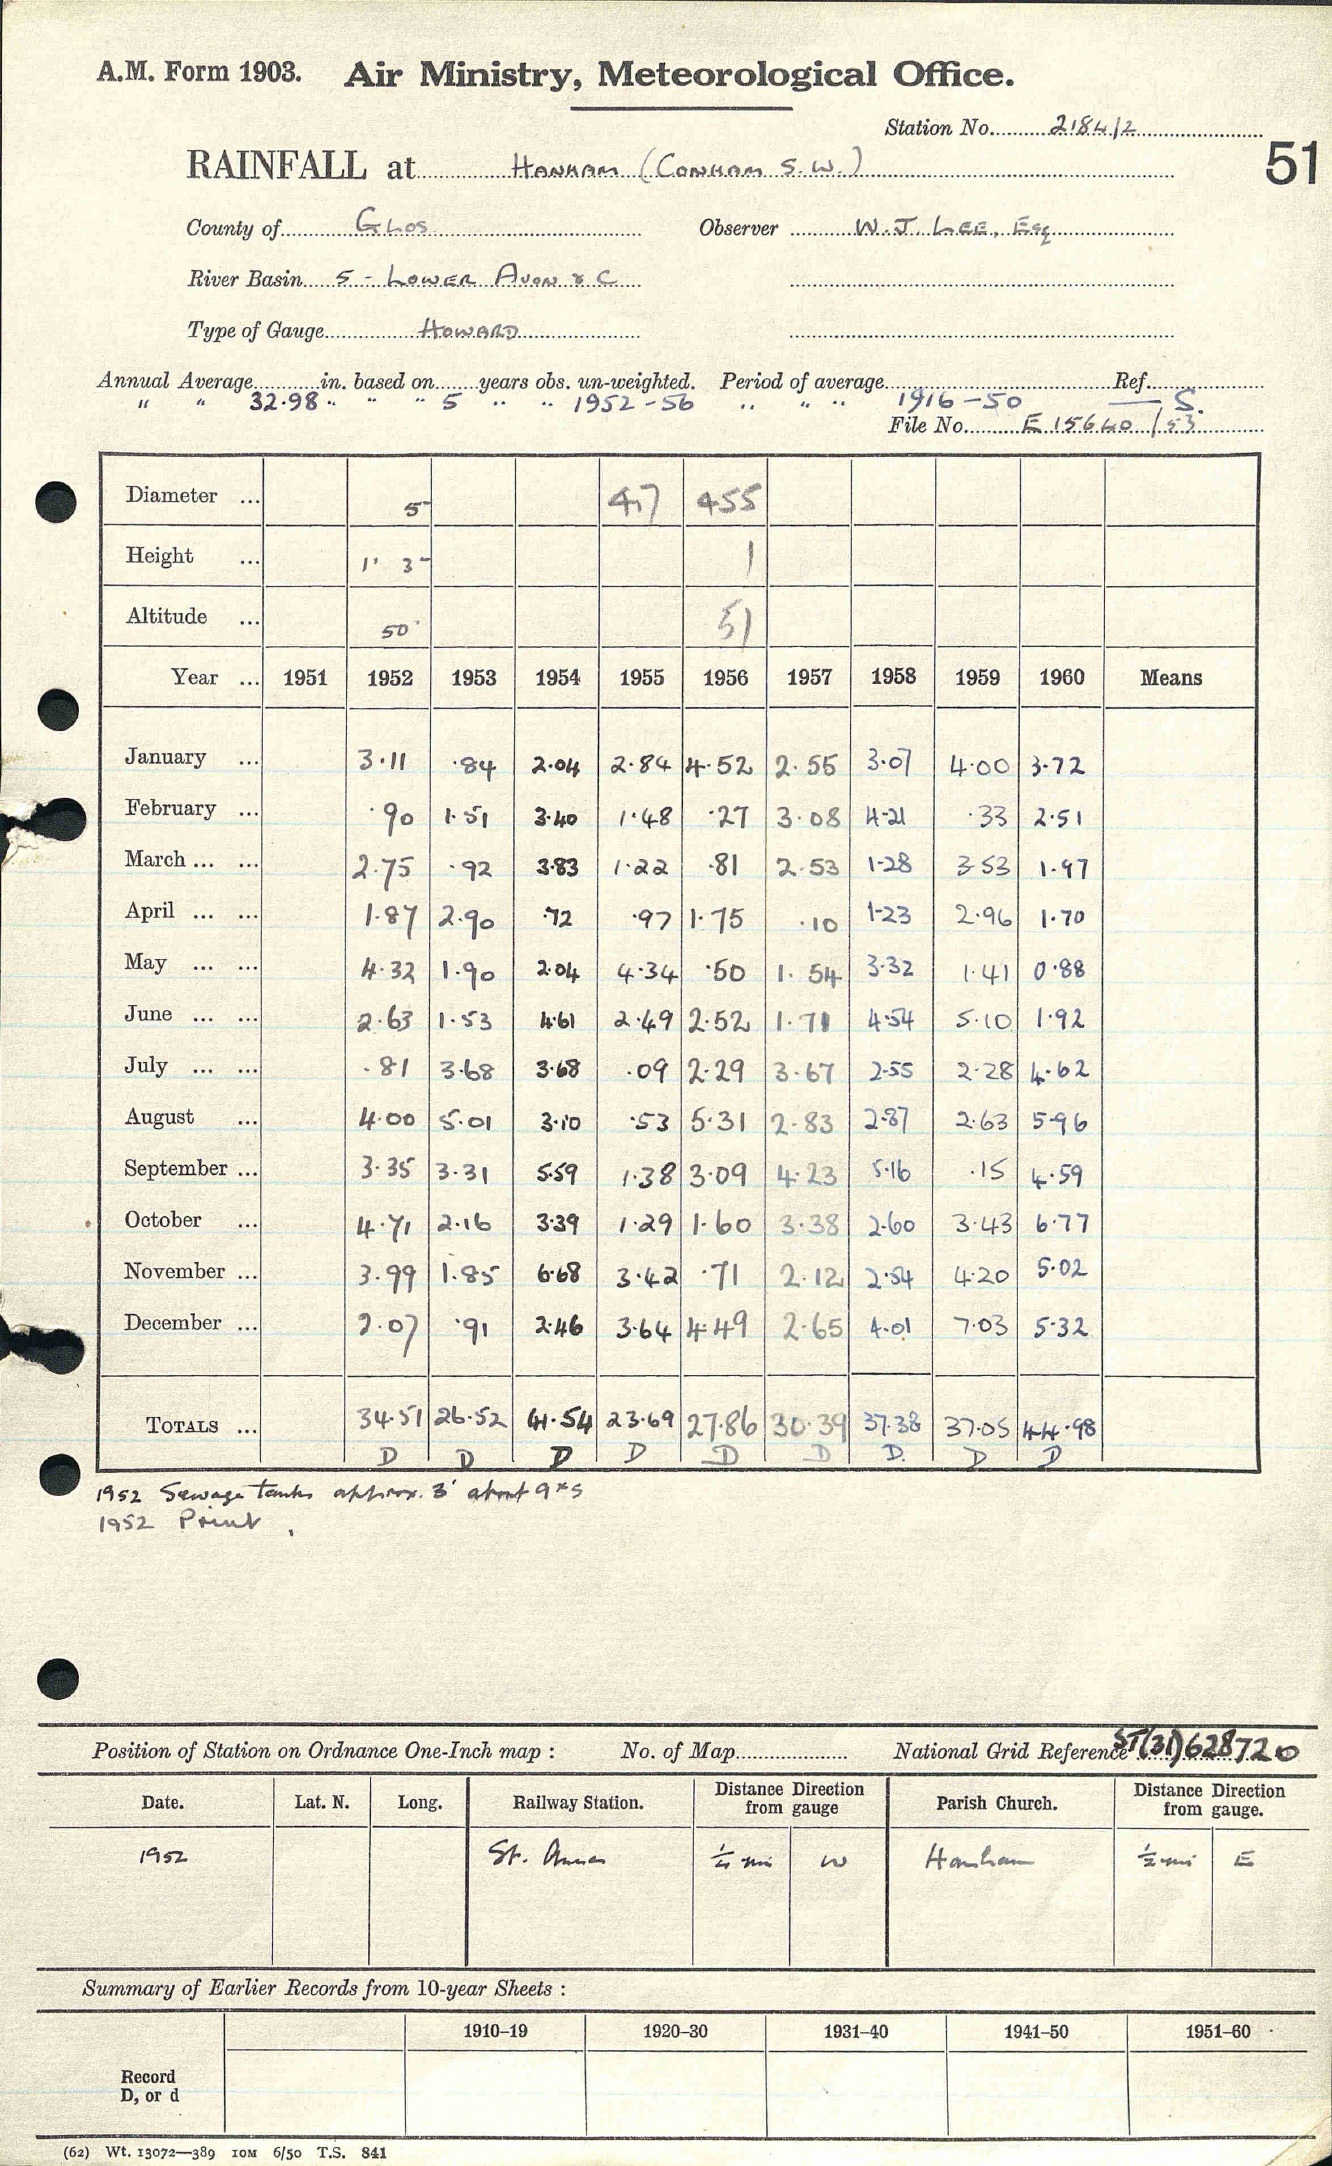 A.M. Form 1903. Air Ministry, Meteorological Office.
Station No. 2184/2
RAINFALL at HANHAM (CONHAM S.W.) 51
County of GLOS Observer W. J. LEE, Esq
River Basin 5 - LOWER AVON & C
Type of Gauge HOWARD
Annual Average in. based on years obs. un-weighted. Period of average Ref.
" " 32.98 " " " 5 " " 1952-56 " " " 1916-50 — S.
File No. E 15640/53
Diameter ... 5 4.7 4.55
Height ... 1' 3" 1
Altitude ... 50' 51
Year ... 1951 1952 1953 1954 1955 1956 1957 1958 1959 1960 Means
January ... 3.11 .84 2.04 2.84 4.52 2.55 3.07 4.00 3.72
February ... .90 1.51 3.40 1.48 .27 3.08 4.21 .33 2.51
March ... ... 2.75 .92 3.83 1.22 .81 2.53 1.28 3.53 1.97
April ... ... 1.87 2.90 .72 .97 1.75 .10 1.23 2.96 1.70
May ... ... 4.32 1.90 2.04 4.34 .50 1.54 3.32 1.41 0.88
June ... ... 2.63 1.53 4.61 2.49 2.52 1.71 4.54 5.10 1.92
July ... ... .81 3.68 3.68 .09 2.29 3.67 2.55 2.28 4.62
August ... 4.00 5.01 3.10 .53 5.31 2.83 2.87 2.63 5.96
September ... 3.35 3.31 5.59 1.38 3.09 4.23 5.16 .15 4.59
October ... 4.71 2.16 3.39 1.29 1.60 3.38 2.60 3.43 6.77
November ... 3.99 1.85 6.68 3.42 .71 2.12 2.54 4.20 5.02
December ... 2.07 .91 2.46 3.64 4.49 2.65 4.01 7.03 5.32
TOTALS ... 34.51 26.52 41.54 23.69 27.86 30.39 37.38 37.05 44.98
D D D D D D D. D D
1952 Sewage tanks approx. 3' about 9 x 5
1952 Print
Position of Station on Ordnance One-Inch map : No. of Map National Grid Reference ST(31)628720
Date. Lat. N. Long. Railway Station. Distance Direction from gauge Parish Church. Distance Direction from gauge.
1952 St. Annes ¼ mi W Hanham ½ mi E
Summary of Earlier Records from 10-year Sheets :
1910–19 1920–30 1931–40 1941–50 1951–60
Record
D, or d
(62) Wt. 13072—389 10M 6/50 T.S. 841